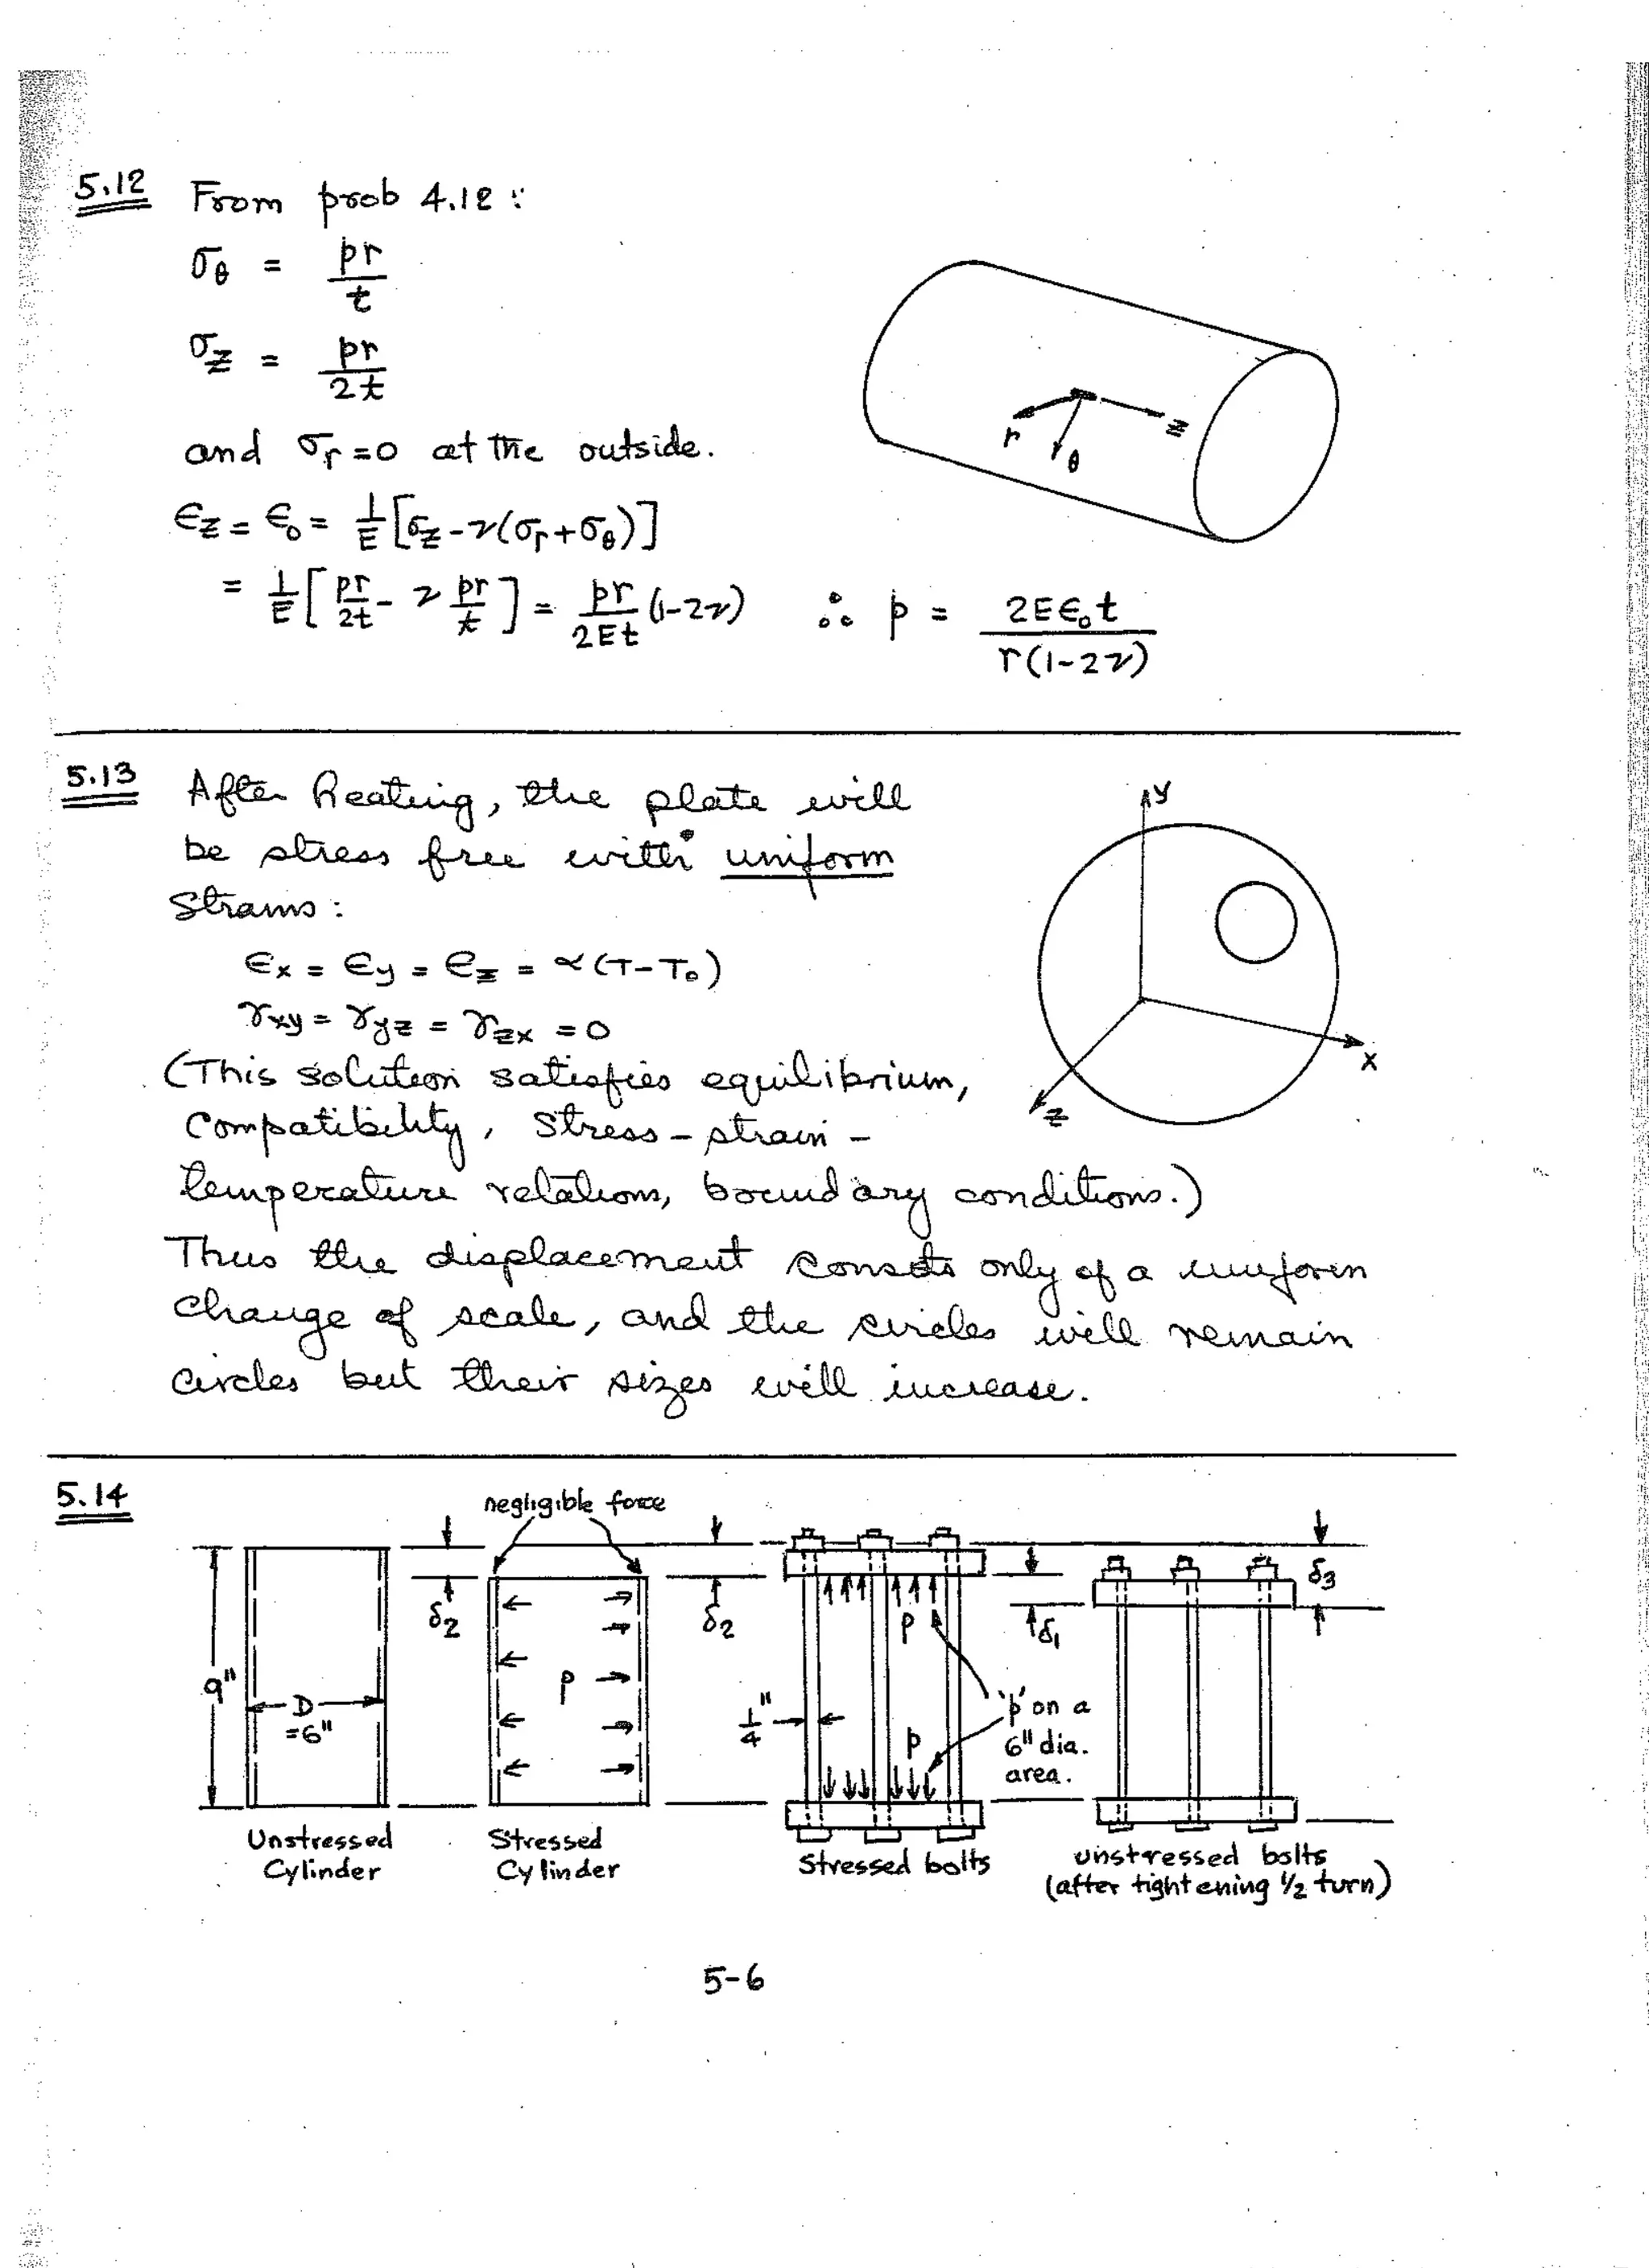 5.12 From prob 4.12 :
σθ = pr/t
σz = pr/2t
and σr = 0 at the outside.
r θ z
εz = ε0 = 1/E [σz - ν(σr + σθ)]
= 1/E [pr/2t - ν pr/t] = pr/2Et (1-2ν) ∴ p = 2Eε0t / r(1-2ν)
5.13 After heating, the plate will
be stress free with uniform
Strains :
εx = εy = εz = α(T-To)
γxy = γyz = γzx = 0
(This solution satisfies equilibrium,
Compatibility, Stress-strain-
temperature relations, boundary conditions.)
y
x
z
Thus the displacement consists only of a uniform
change of scale, and the circles will remain
circles but their sizes will increase.
5.14
negligible force
9"
D
=6"
δ2
p
δ2
1/4"
p
p
δ1
'p' on a
6" dia.
area.
δ3
Unstressed
Cylinder
Stressed
Cylinder
Stressed bolts
unstressed bolts
(after tightening 1/2 turn)
5-6